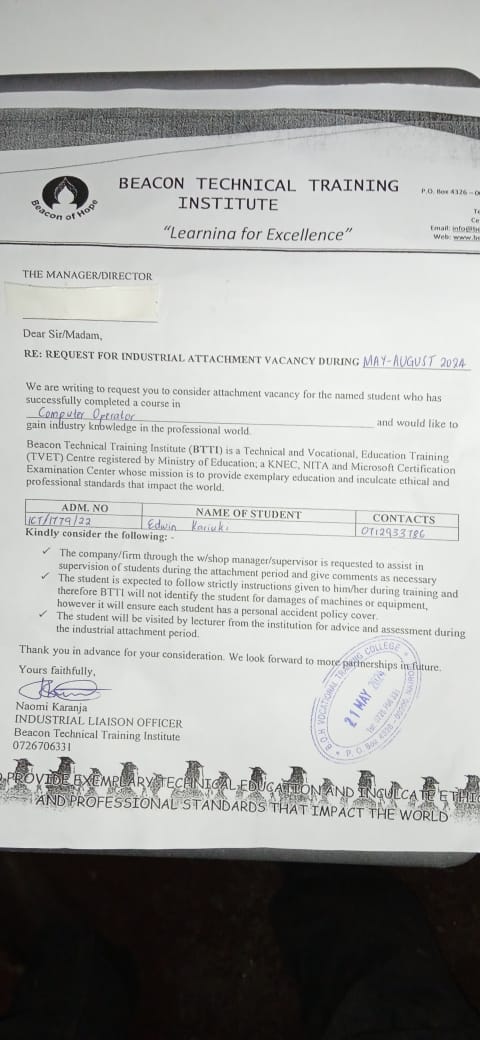 BEACON TECHNICAL TRAINING
INSTITUTE
"Learning for Excellence"
Beacon of Hope
P.O. Box 4326 – 0
Te
Ce
Email: info@be
Web: www.be
THE MANAGER/DIRECTOR
Dear Sir/Madam,
RE: REQUEST FOR INDUSTRIAL ATTACHMENT VACANCY DURING MAY-AUGUST 2024
We are writing to request you to consider attachment vacancy for the named student who has
successfully completed a course in
Computer Operator and would like to
gain industry knowledge in the professional world.
Beacon Technical Training Institute (BTTI) is a Technical and Vocational, Education Training
(TVET) Centre registered by Ministry of Education; a KNEC, NITA and Microsoft Certification
Examination Center whose mission is to provide exemplary education and inculcate ethical and
professional standards that impact the world.
ADM. NO NAME OF STUDENT CONTACTS
ICT/1779/22 Edwin Kariuki 0712933786
Kindly consider the following: -
✓ The company/firm through the w/shop manager/supervisor is requested to assist in
supervision of students during the attachment period and give comments as necessary
✓ The student is expected to follow strictly instructions given to him/her during training and
therefore BTTI will not identify the student for damages of machines or equipment,
however it will ensure each student has a personal accident policy cover.
✓ The student will be visited by lecturer from the institution for advice and assessment during
the industrial attachment period.
Thank you in advance for your consideration. We look forward to more partnerships in future.
Yours faithfully,
Naomi Karanja
INDUSTRIAL LIAISON OFFICER
Beacon Technical Training Institute
0726706331
B.O.H VOCATIONAL TRAINING COLLEGE
21 MAY 2024
P. O. Box 4326 NAIROBI
O PROVIDE EXEMPLARY TECHNICAL EDUCATION AND INCULCATE ETHIC
AND PROFESSIONAL STANDARDS THAT IMPACT THE WORLD